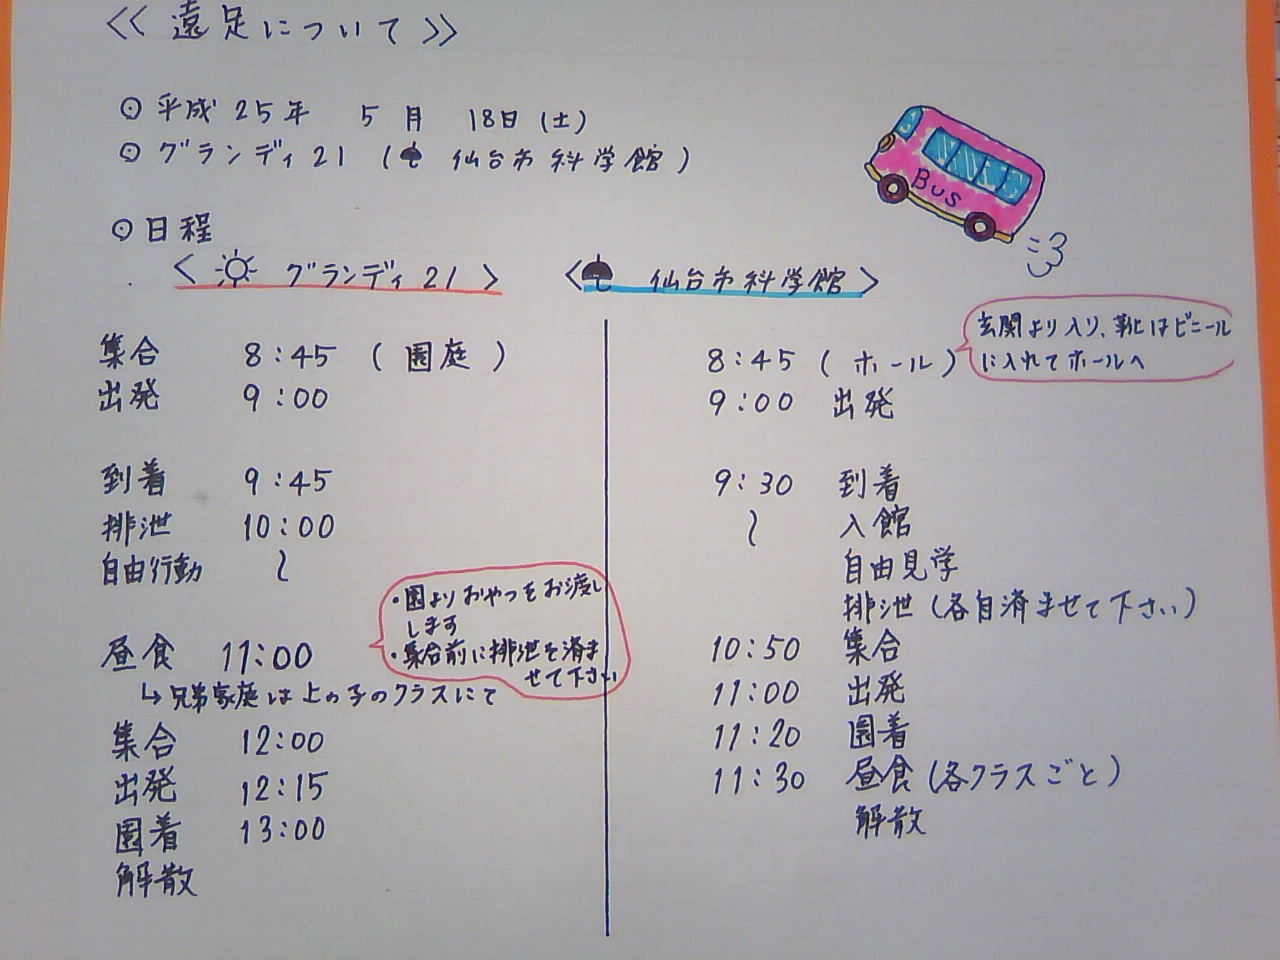 <<遠足について>>
◎平成25年 5月 18日(土)
◎グランディ21 (☂ 仙台市科学館)
BUS
◎日程
<☀ グランディ21>
集合 8:45 (園庭)
出発 9:00
到着 9:45
排泄 10:00
自由行動 〜
・園よりおやつをお渡し
します
・集合前に排泄を済ま
せて下さい
昼食 11:00
↳兄弟家庭は上の子のクラスにて
集合 12:00
出発 12:15
園着 13:00
解散
<☂ 仙台市科学館>
8:45 (ホール)
玄関より入り、靴はビニール
に入れてホールへ
9:00 出発
9:30 到着
〜 入館
自由見学
排泄(各自済ませて下さい)
10:50 集合
11:00 出発
11:20 園着
11:30 昼食(各クラスごと)
解散